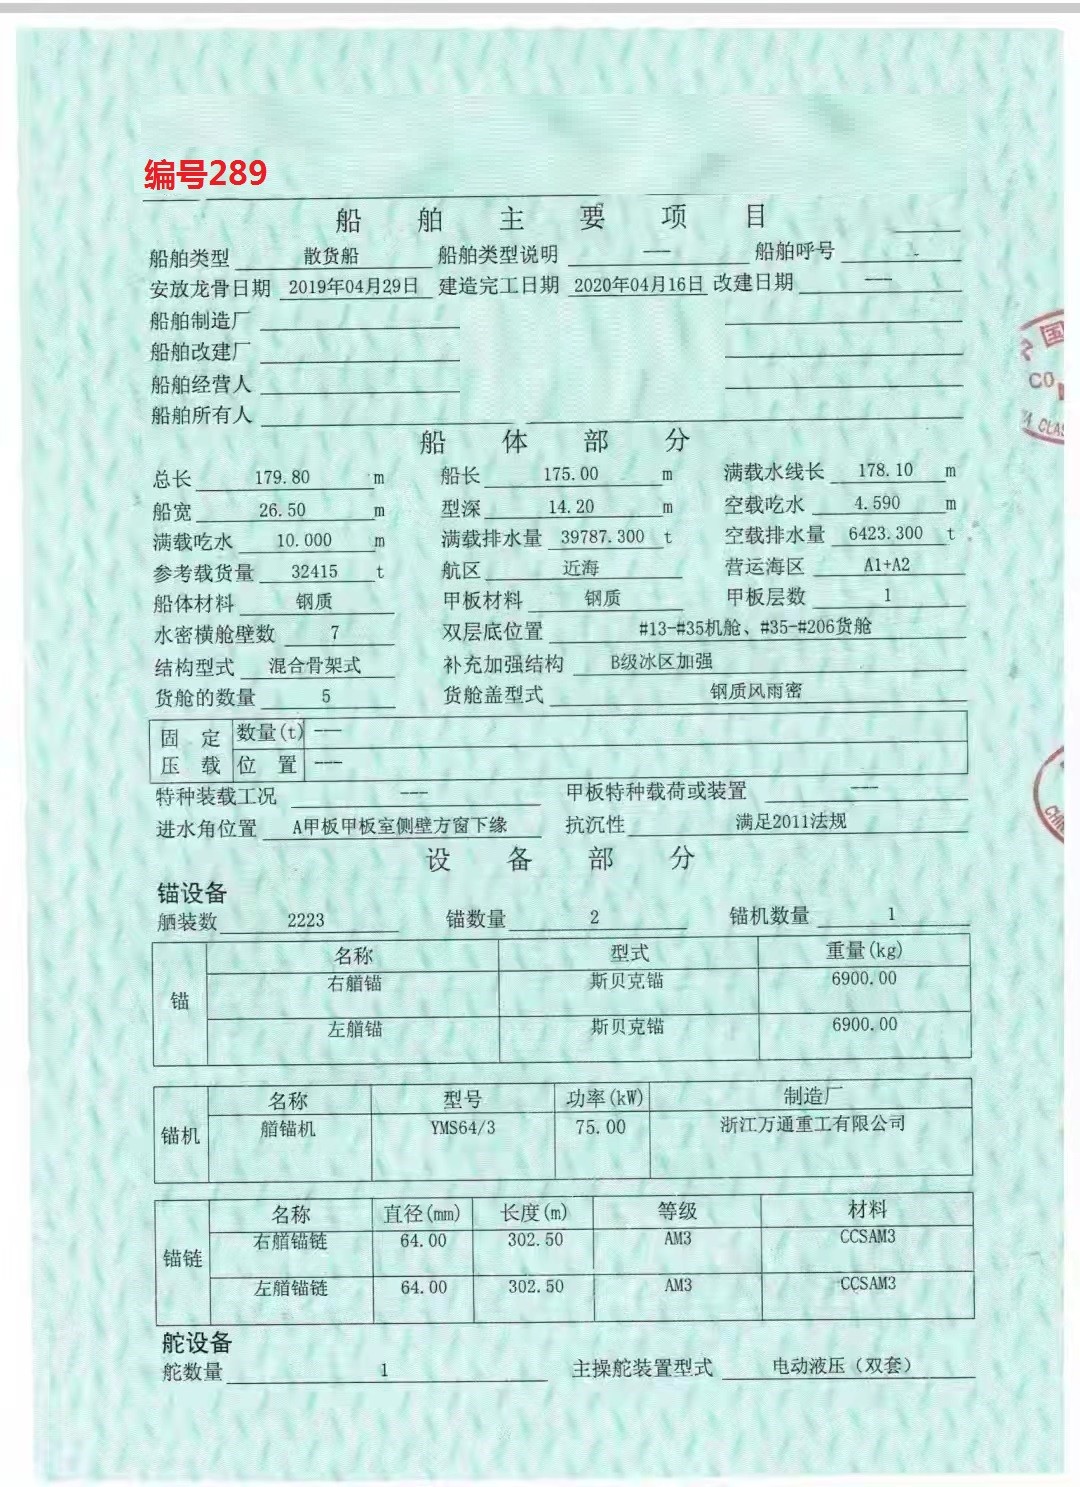 编号289
船舶主要项目
船舶类型 散货船 船舶类型说明 --- 船舶呼号 -
安放龙骨日期 2019年04月29日 建造完工日期 2020年04月16日 改建日期 ---
船舶制造厂
船舶改建厂
船舶经营人
船舶所有人
船体部分
总长 179.80 m 船长 175.00 m 满载水线长 178.10 m
船宽 26.50 m 型深 14.20 m 空载吃水 4.590 m
满载吃水 10.000 m 满载排水量 39787.300 t 空载排水量 6423.300 t
参考载货量 32415 t 航区 近海 营运海区 A1+A2
船体材料 钢质 甲板材料 钢质 甲板层数 1
水密横舱壁数 7 双层底位置 #13-#35机舱、#35-#206货舱
结构型式 混合骨架式 补充加强结构 B级冰区加强
货舱的数量 5 货舱盖型式 钢质风雨密
固定压载 数量(t) ---
位置 ---
特种装载工况 --- 甲板特种载荷或装置 ---
进水角位置 A甲板甲板室侧壁方窗下缘 抗沉性 满足2011法规
设备部分
锚设备
舾装数 2223 锚数量 2 锚机数量 1
名称 型式 重量(kg)
锚
右艏锚 斯贝克锚 6900.00
左艏锚 斯贝克锚 6900.00
名称 型号 功率(kW) 制造厂
锚机 艏锚机 YMS64/3 75.00 浙江万通重工有限公司
名称 直径(mm) 长度(m) 等级 材料
锚链
右艏锚链 64.00 302.50 AM3 CCSAM3
左艏锚链 64.00 302.50 AM3 CCSAM3
舵设备
舵数量 1 主操舵装置型式 电动液压（双套）
国
CO
CLAS
CHIN